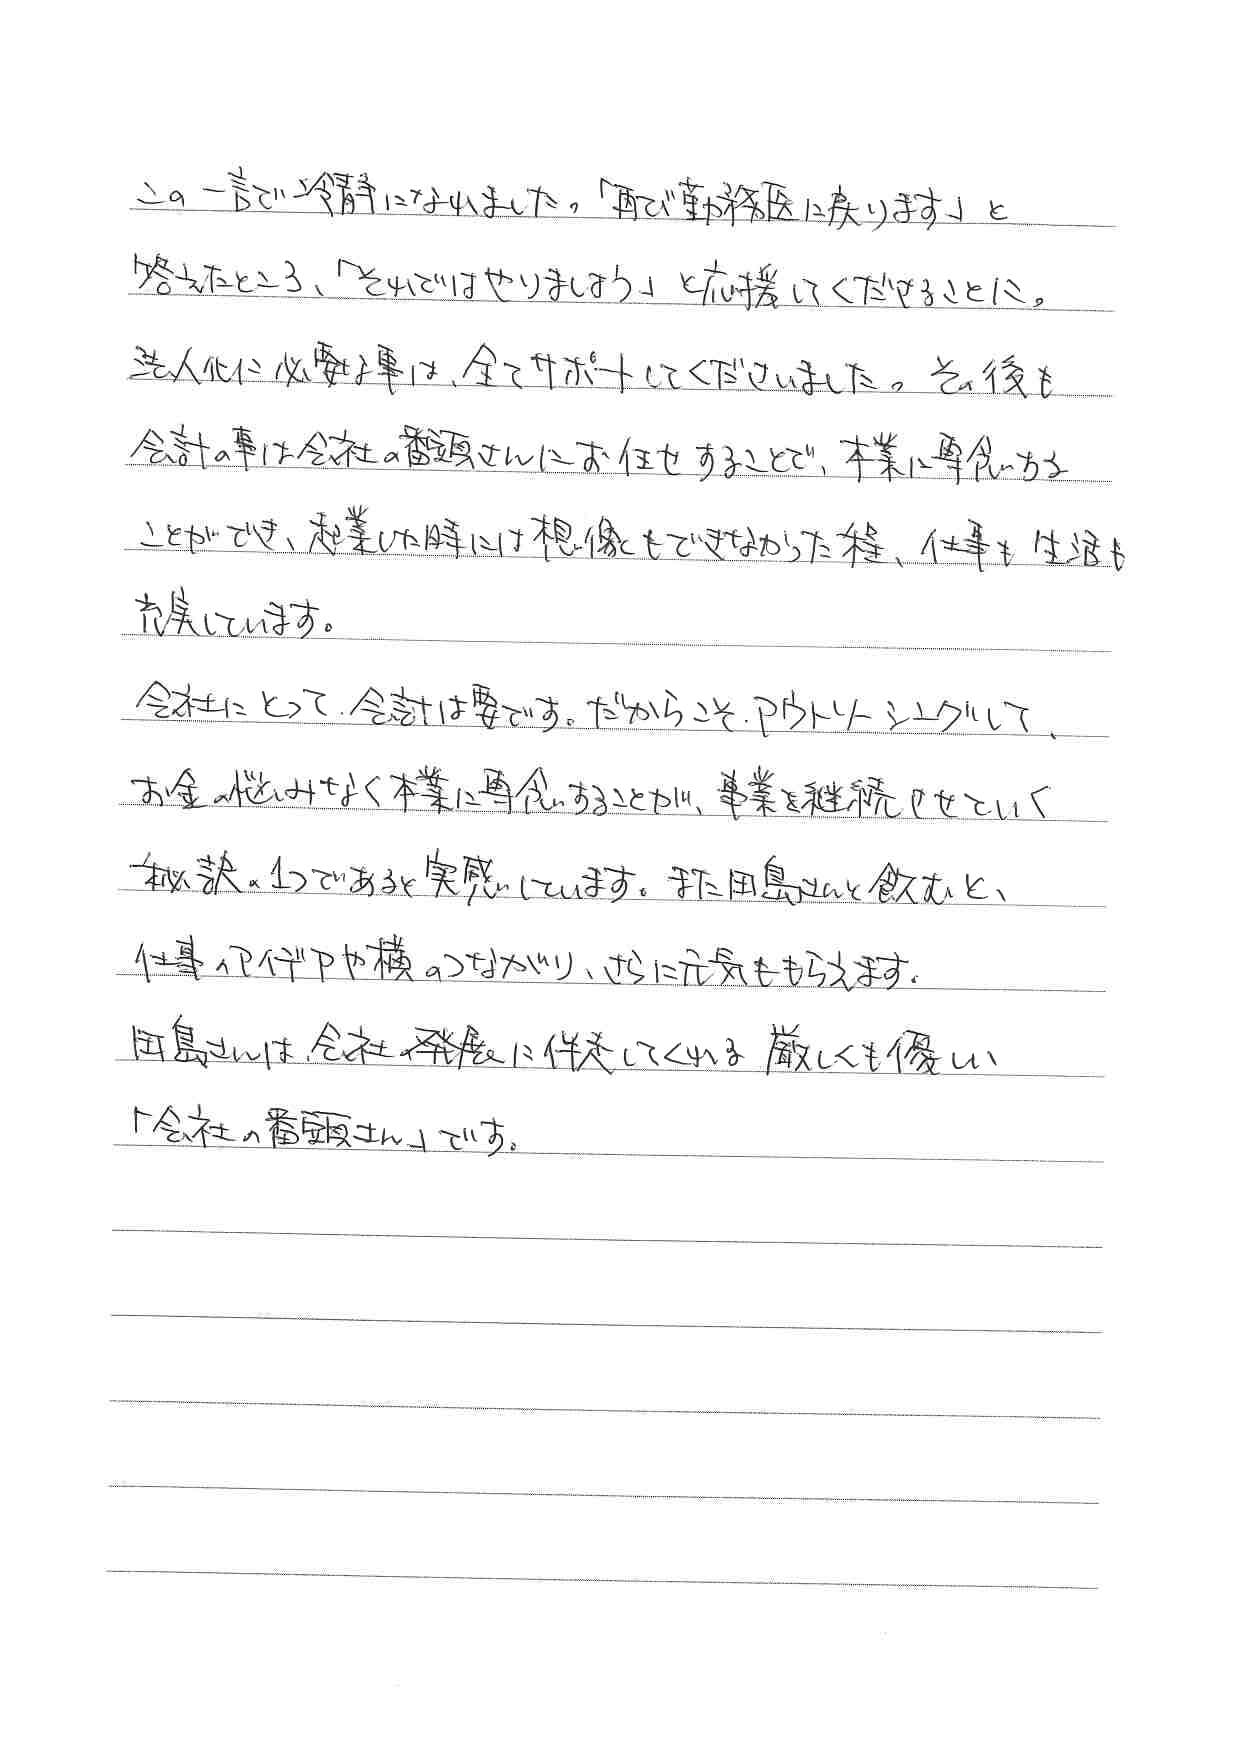 この一言で冷静になれました。「再び勤務医に戻ります」と
答えたところ、「それではやりましょう」と応援してくださることに。
法人化に必要な事は、全てサポートしてくださいました。その後も
会計の事は会社の番頭さんにお任せすることで、本業に専念する
ことができ、起業した時には想像もできなかった程、仕事も生活も
充実しています。
会社にとって、会計は要です。だからこそ、アウトソーシングして、
お金の悩みなく本業に専念することが、事業を継続させていく
秘訣の1つであると実感しています。また田島さんと飲むと、
仕事のアイデアや横のつながり、さらに元気ももらえます。
田島さんは、会社の発展に伴走してくれる厳しくも優しい
「会社の番頭さん」です。